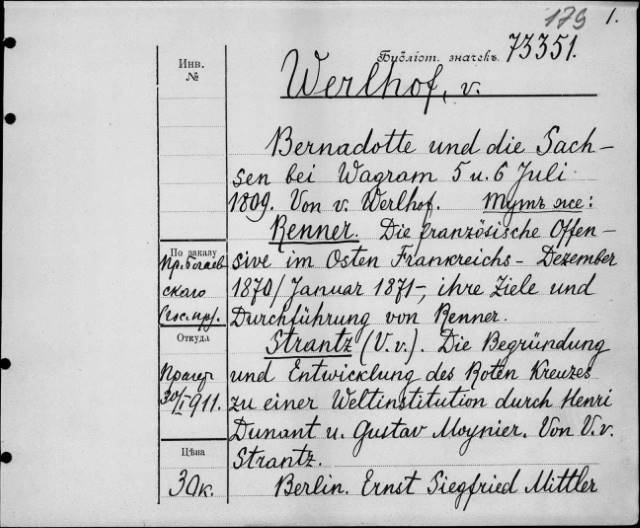 179 1.
Библіот. значекъ 73351.
Инв.
№
Werlhof, v.
Bernadotte und die Sach-
sen bei Wagram 5 u. 6 Juli
1809. Von v. Werlhof. Тутъ же:
Renner. Die französische Offen-
sive im Osten Frankreichs - Dezember
1870/Januar 1871-, ihre Ziele und
Durchführung von Renner.
Strantz (V. v.). Die Begründung
und Entwicklung des Roten Kreuzes
zu einer Weltinstitution durch Henri
Dunant u. Gustav Moynier. Von V. v.
Strantz.
Berlin. Ernst Siegfried Mittler
По заказу
скаго
Откуда
30/I 911.
Цѣна
30к.